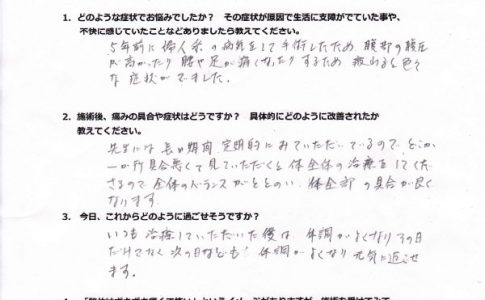 1. どのような症状でお悩みでしたか？ その症状が原因で生活に支障がでていた事や、
不快に感じていたことなどありましたら教えてください。
5年前に婦人系の病気をして手術したため 腹部の腹圧
が高かったり 腰や足が痛くなったりするため 色々
な症状がでました。
2. 施術後、痛みの具合や症状はどうですか？ 具体的にどのように改善されたか
教えてください。
先生には長い期間 定期的にみていただいているので どこか
一か所具合悪くて見ていただくと 体全体の治療をしてくだ
さるので 全体のバランスがととのい、体全部の具合が良く
なります。
3. 今日、これからどのように過ごせそうですか？
いつも治療していただいた後は 体調がよくなりその日
だけでなく次の日なども 体調がよくなり 元気に過ごせ
ます。